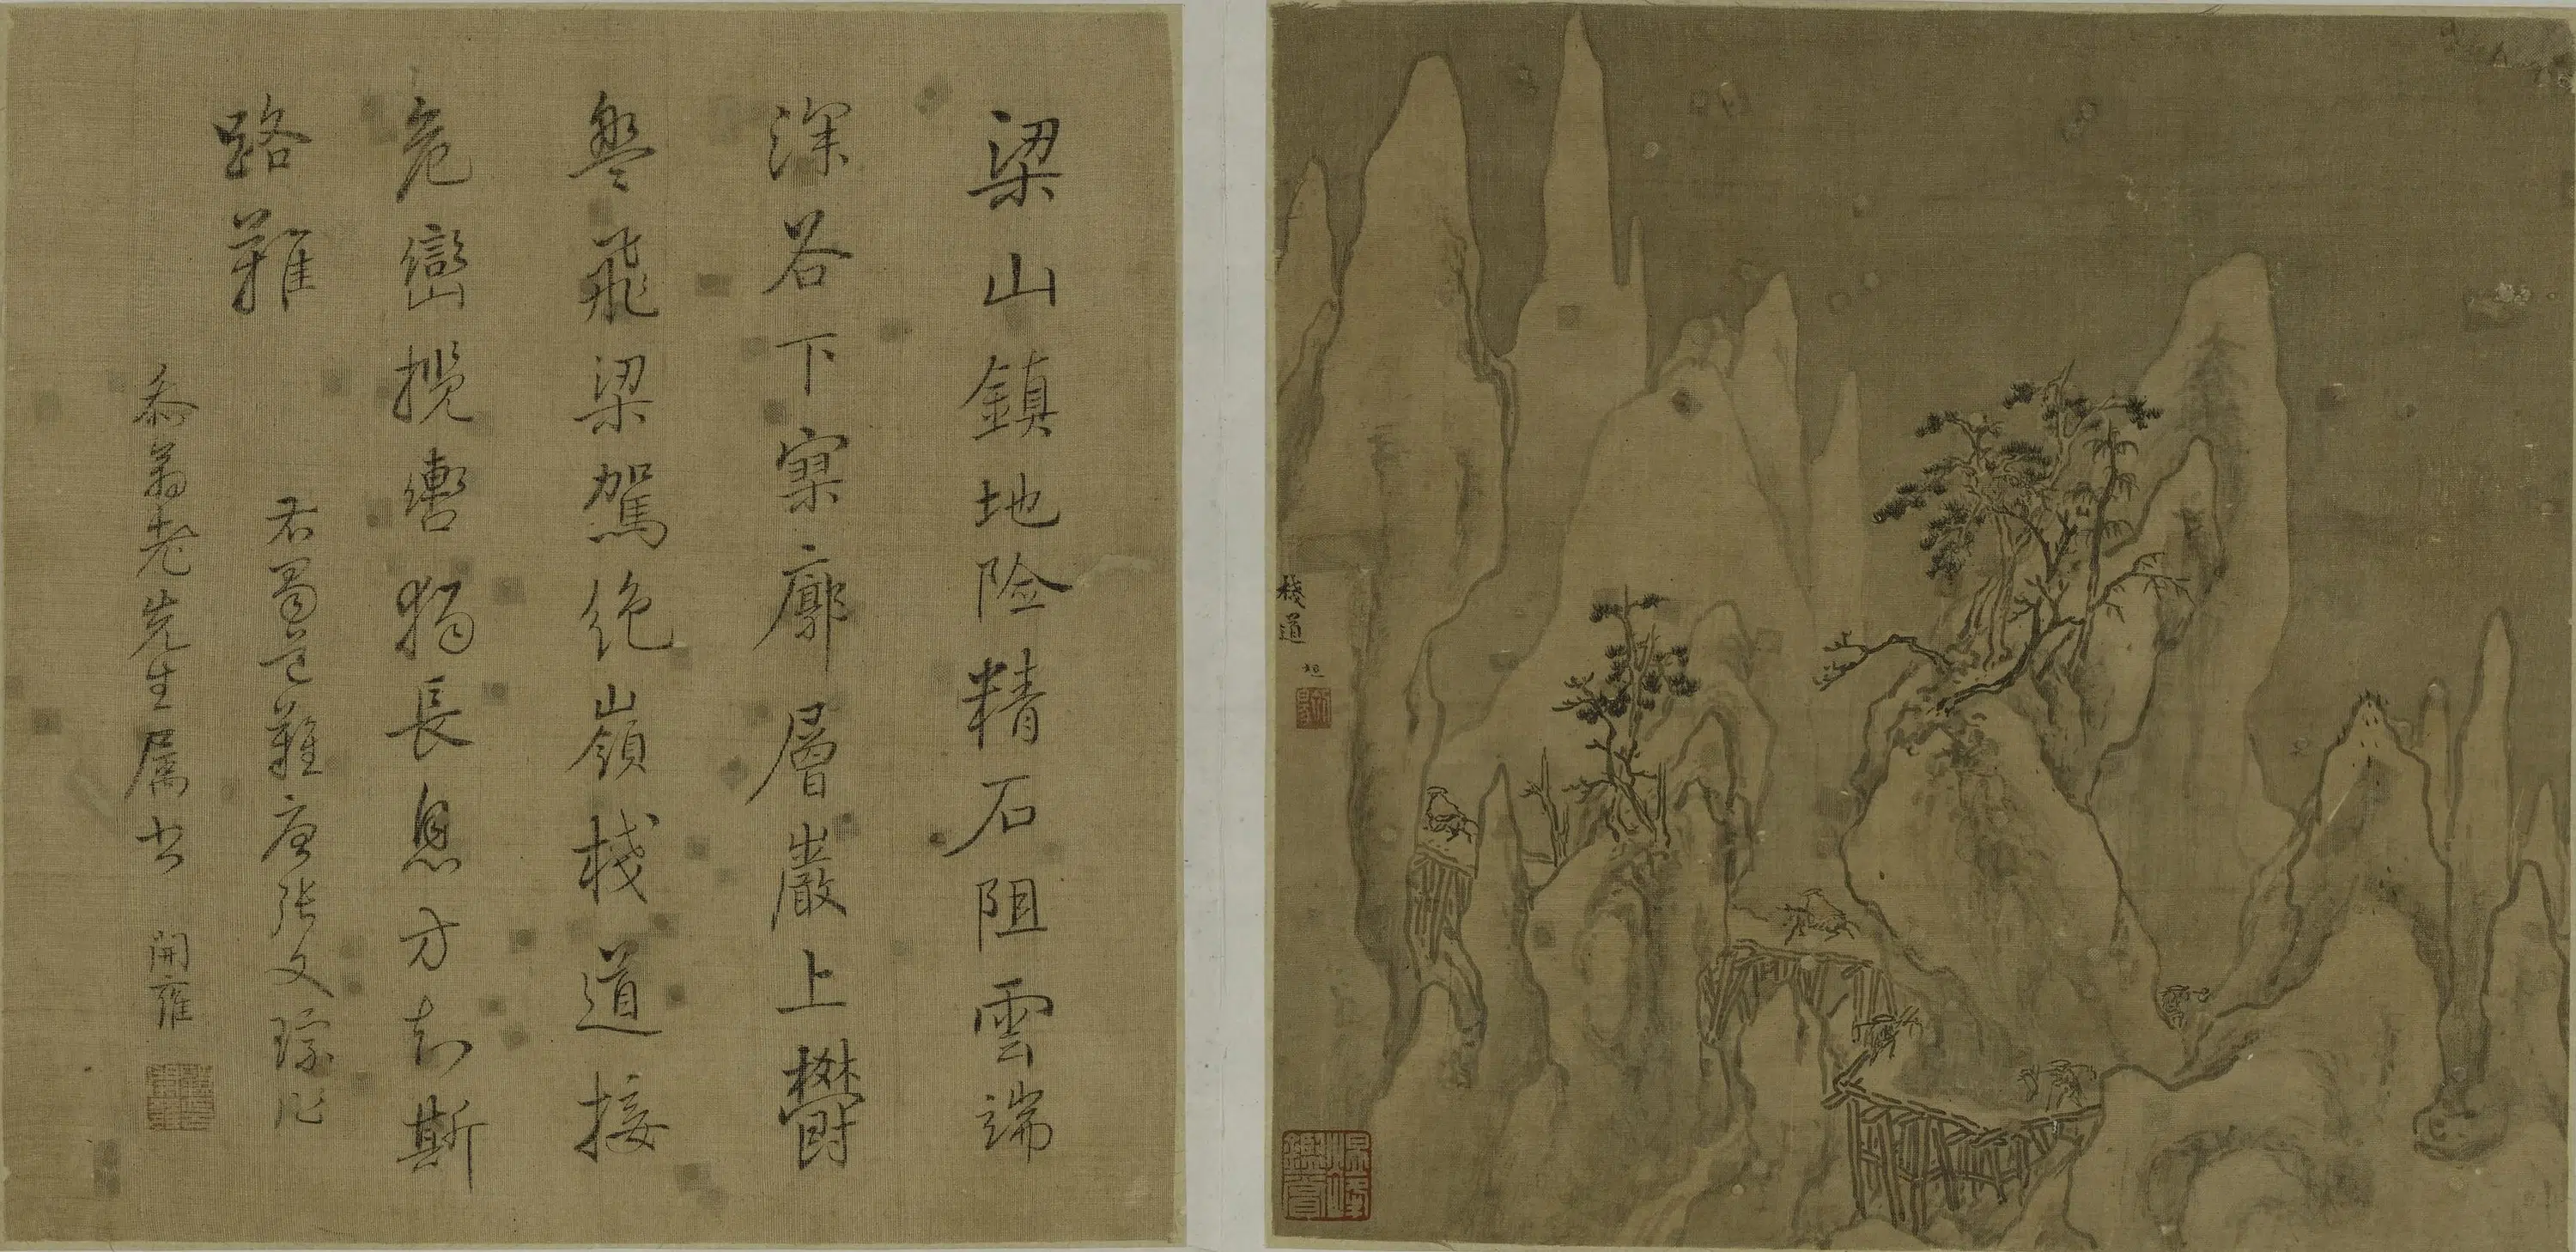 梁山鎮地險精石阻雲端
深谷下寥廓層巖上欝
盤飛梁駕絶嶺棧道接
危巒攬轡獨長息方知斯
路難
右蜀道難唐張文琮作
泰翁老先生属書 開雍
棧道
旭